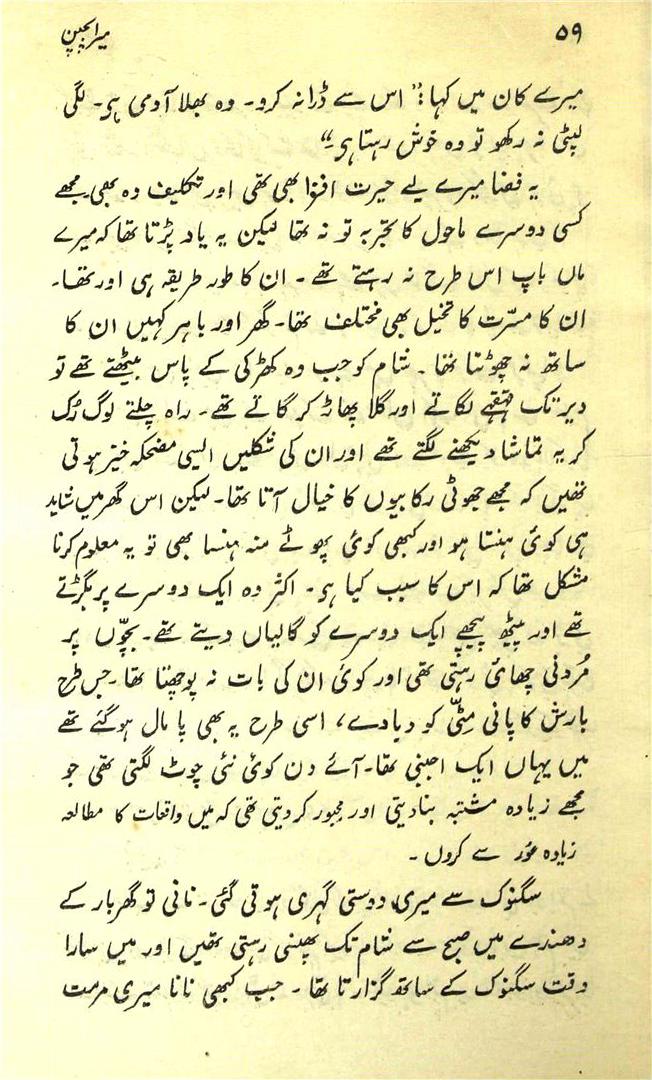 ۵۹ میرا بچپن
میرے کان میں کہا: " اس سے ڈرا نہ کرو۔ وہ بھلا آدمی ہی۔ لگی
لپٹی نہ رکھو تو وہ خوش رہتا ہی"
یہ فضا میرے لیے حیرت افزا بھی تھی اور تکلیف دہ بھی۔ مجھے
کسی دوسرے ماحول کا تجربہ تو نہ تھا لیکن یہ یاد پڑتا تھا کہ میرے
ماں باپ اس طرح نہ رہتے تھے ۔ ان کا طور طریقہ ہی اور تھا۔
ان کا مسرّت کا تخیل بھی مختلف تھا۔ گھر اور باہر کہیں ان کا
ساتھ نہ چھوٹتا تھا ۔ شام کو جب وہ کھڑکی کے پاس بیٹھتے تھے تو
دیر تک قہقہے لگاتے اور گلا پھاڑ کر گاتے تھے۔ راہ چلتے لوگ رُک
کر یہ تماشا دیکھنے لگتے تھے اور ان کی شکلیں ایسی مضحکہ خیز ہوتی
تھیں کہ مجھے جھوٹی رکابیوں کا خیال آتا تھا۔ لیکن اس گھر میں شاید
ہی کوئ ہنستا ہو اور کبھی کوئ پھوٹے منہ ہنسا بھی تو یہ معلوم کرنا
مشکل تھا کہ اس کا سبب کیا ہی۔ اکثر وہ ایک دوسرے پر بگڑتے
تھے اور پیٹھ پیچھے ایک دوسرے کو گالیاں دیتے تھے۔ بچّوں پر
مُردنی چھائ رہتی تھی اور کوئ ان کی بات نہ پوچھتا تھا۔ جس طرح
بارش کا پانی مٹّی کو دبا دے، اسی طرح یہ بھی پامال ہو گئے تھے
میں یہاں ایک اجنبی تھا۔ آئے دن کوئ نئی چوٹ لگتی تھی جو
مجھے زیادہ مشتبہ بنا دیتی اور مجبور کر دیتی تھی کہ میں واقعات کا مطالعہ
زیادہ غور سے کروں ۔
سگنوک سے میری دوستی گہری ہوتی گئی۔ نانی تو گھر بار کے
دھندے میں صبح سے شام تک پھنسی رہتی تھیں اور میں سارا
وقت سگنوک کے ساتھ گزارتا تھا ۔ جب کبھی نانا میری مرمت